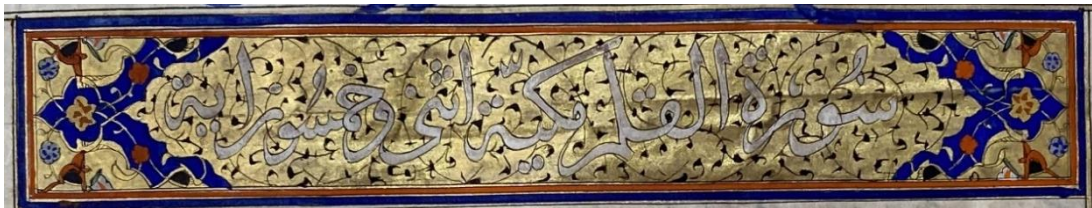 سُورَة القلم مكيّة اثنى وخمسون اية